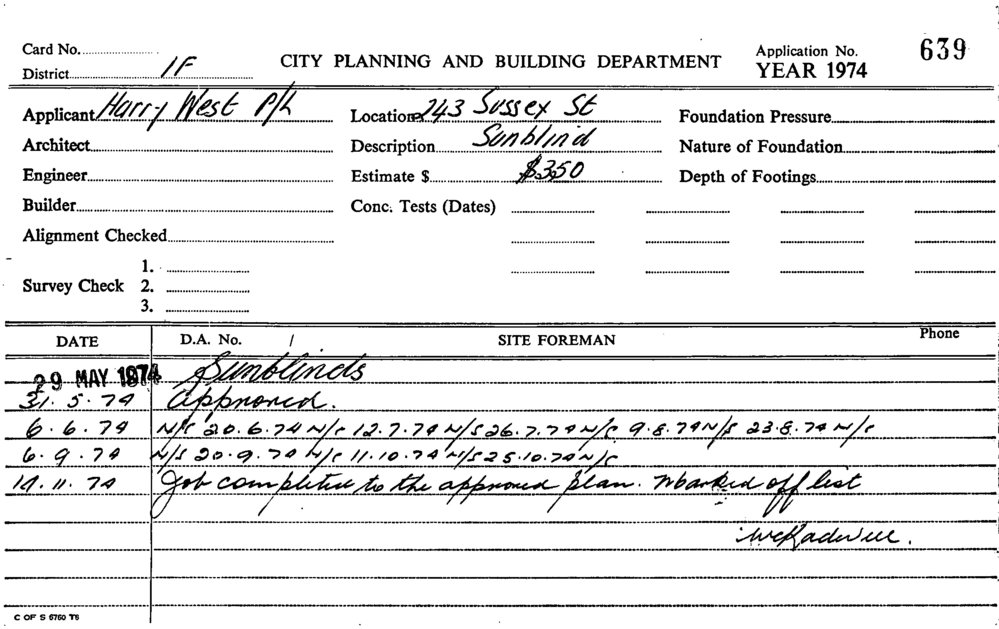 Card No.
District 1F
CITY PLANNING AND BUILDING DEPARTMENT
Application No. 639
YEAR 1974
Applicant Harry West P/L
Location 243 Sussex St
Foundation Pressure
Architect
Description Sunblind
Nature of Foundation
Engineer
Estimate $ $350
Depth of Footings
Builder
Conc. Tests (Dates)
Alignment Checked
Survey Check 1.
2.
3.
DATE D.A. No. / SITE FOREMAN Phone
29 MAY 1974 Sunblinds
31. 5. 74 Approved.
6. 6. 74 N/S 20.6.74 N/S 12.7.74 N/S 26.7.74 N/S 9.8.74 N/S 23.8.74 N/S
6. 9. 74 N/S 20.9.74 N/S 11.10.74 N/S 25.10.74 N/S
14. 11. 74 Job completed to the approved plan. Marked off list
C OF S 5760 T6